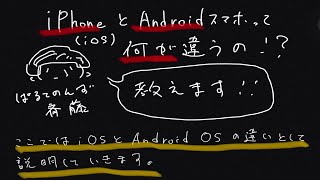 iPhoneとAndroidスマホって
(iOS)
何が違うの!?
ぱるてのんず
斉藤
教えます!!
ここではiOSとAndroid OSの違いとして
説明していきます。